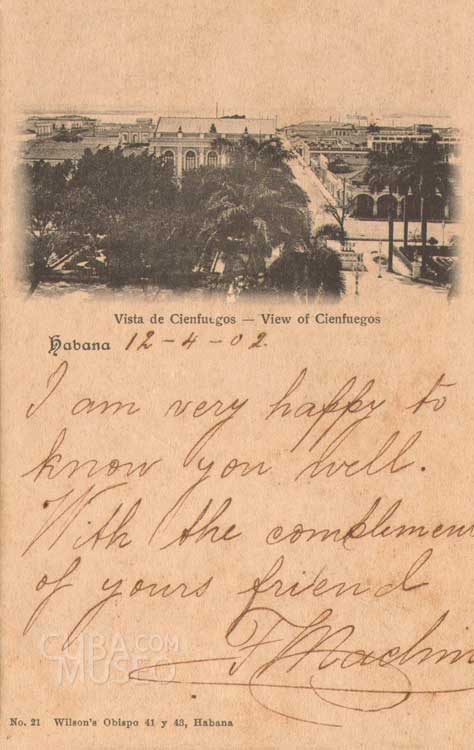 Vista de Cienfuegos — View of Cienfuegos
Habana 12-4-02.
I am very happy to
know you well.
With the compliment
of yours friend
F Machin
CUBA.COM
MUSEO
No. 21 Wilson's Obispo 41 y 43, Habana